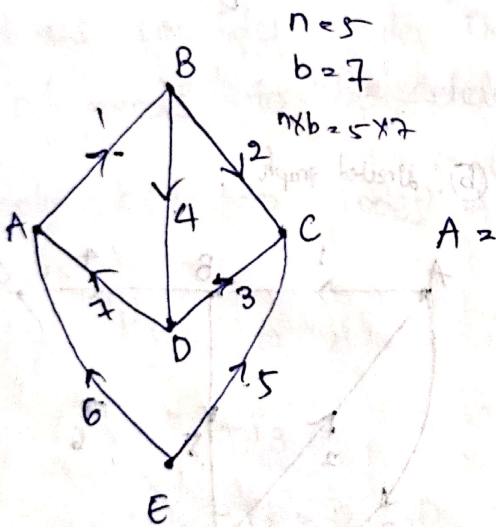 n = 5
b = 7
n×b = 5×7
B
1
2
4
A
C
A =
7
3
D
6
5
E